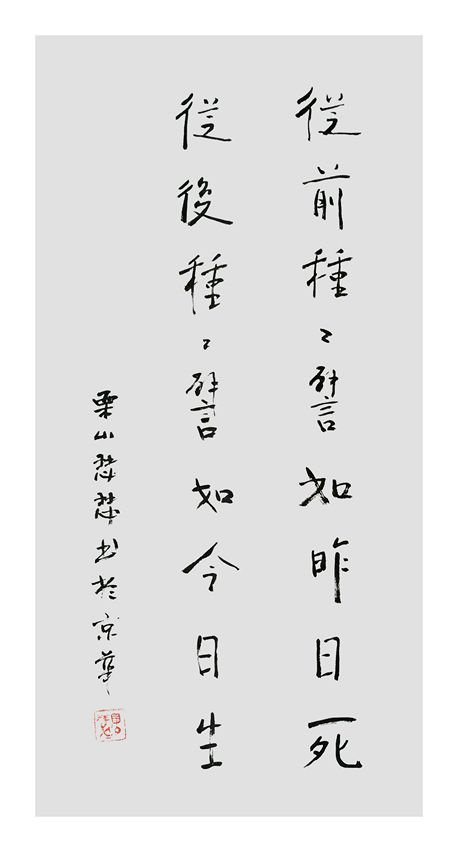 從前種〻譬如昨日死
從後種〻譬如今日生
栗山书於京華